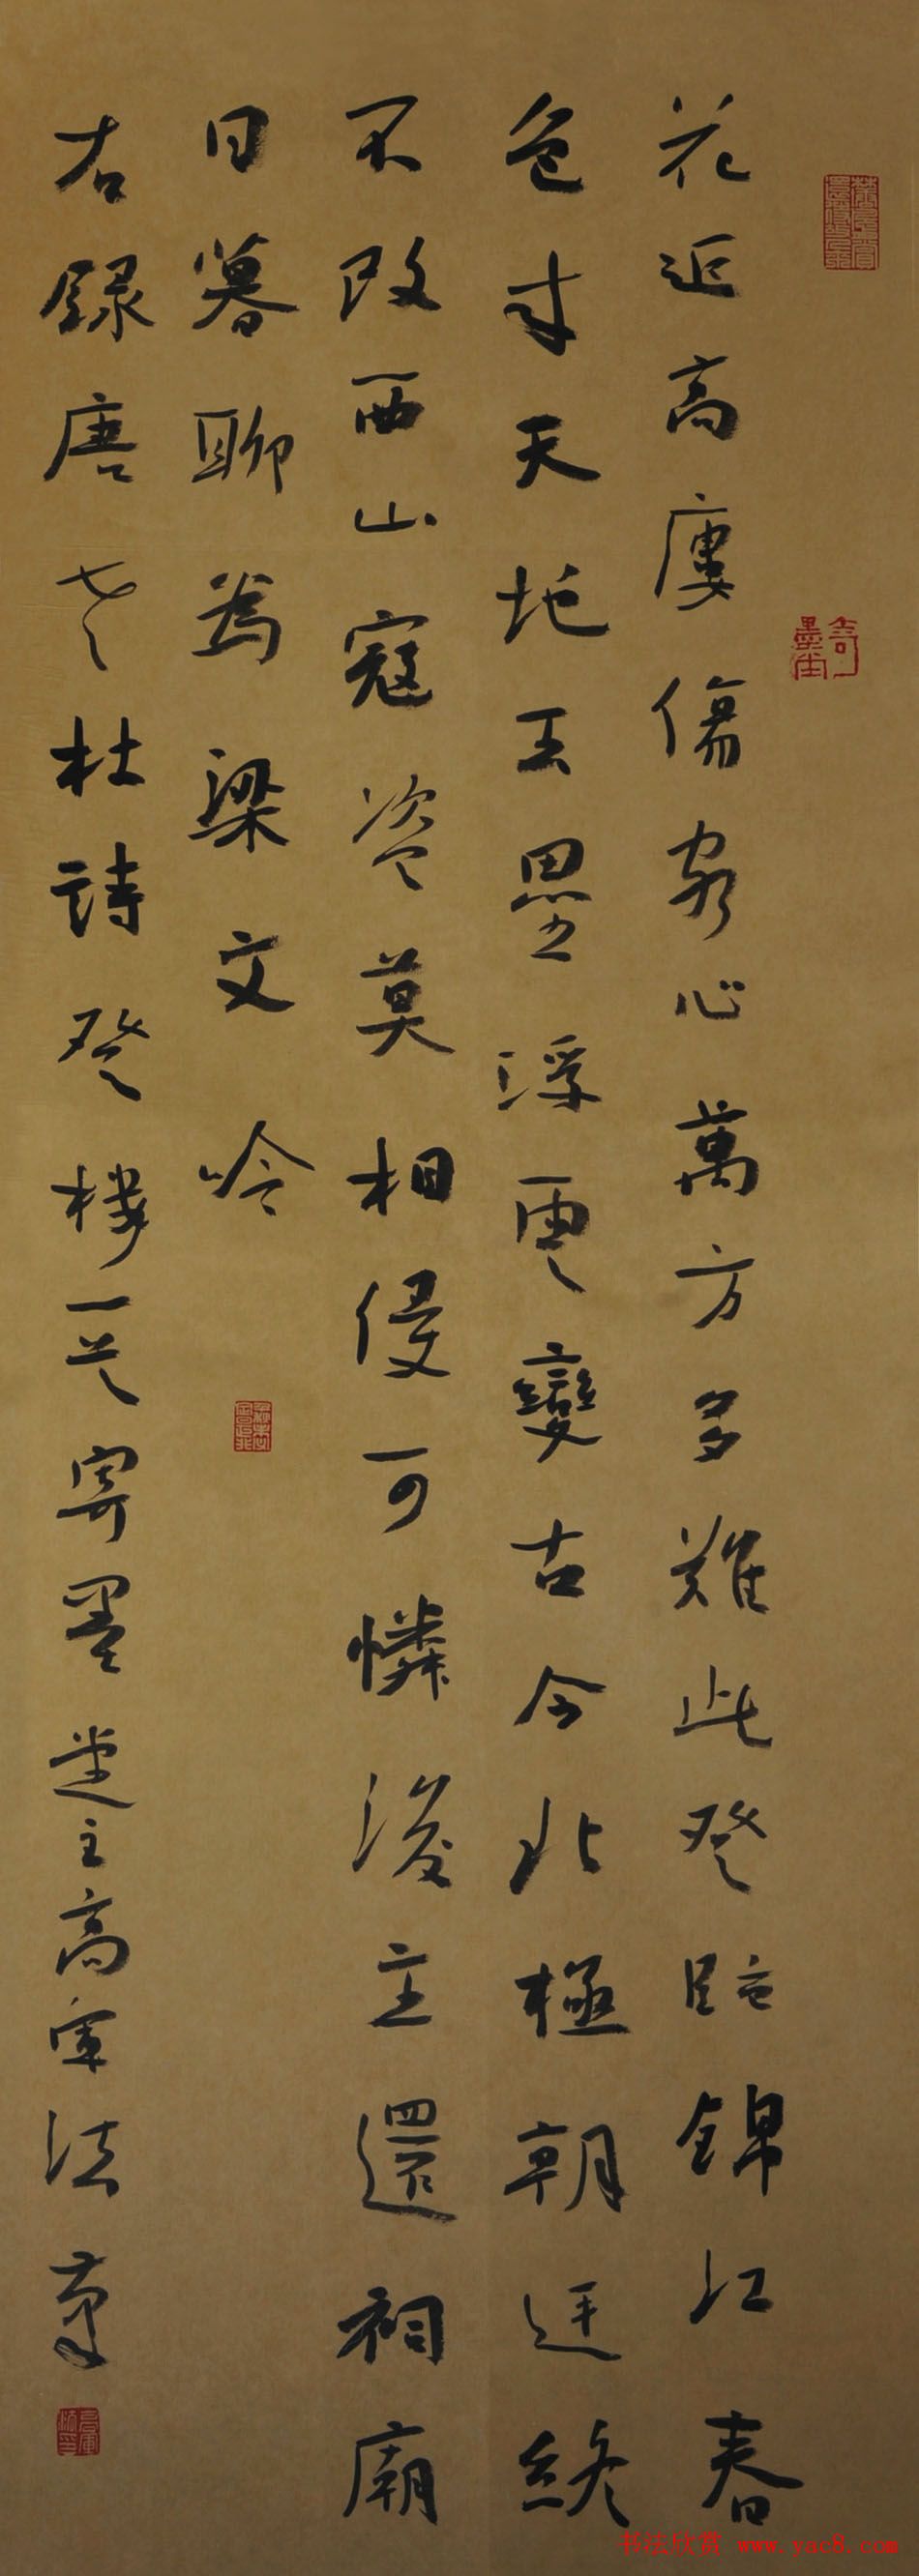 花近高廔傷客心萬方多難此登臨錦江春
色来天地玉壘浮雲變古今北極朝廷終
不改西山寇盗莫相侵可憐後主還祠廟
日暮聊為梁文吟
右録唐老杜詩登樓一首寄墨堂主高軍法書
书法欣赏 www.yac8.com